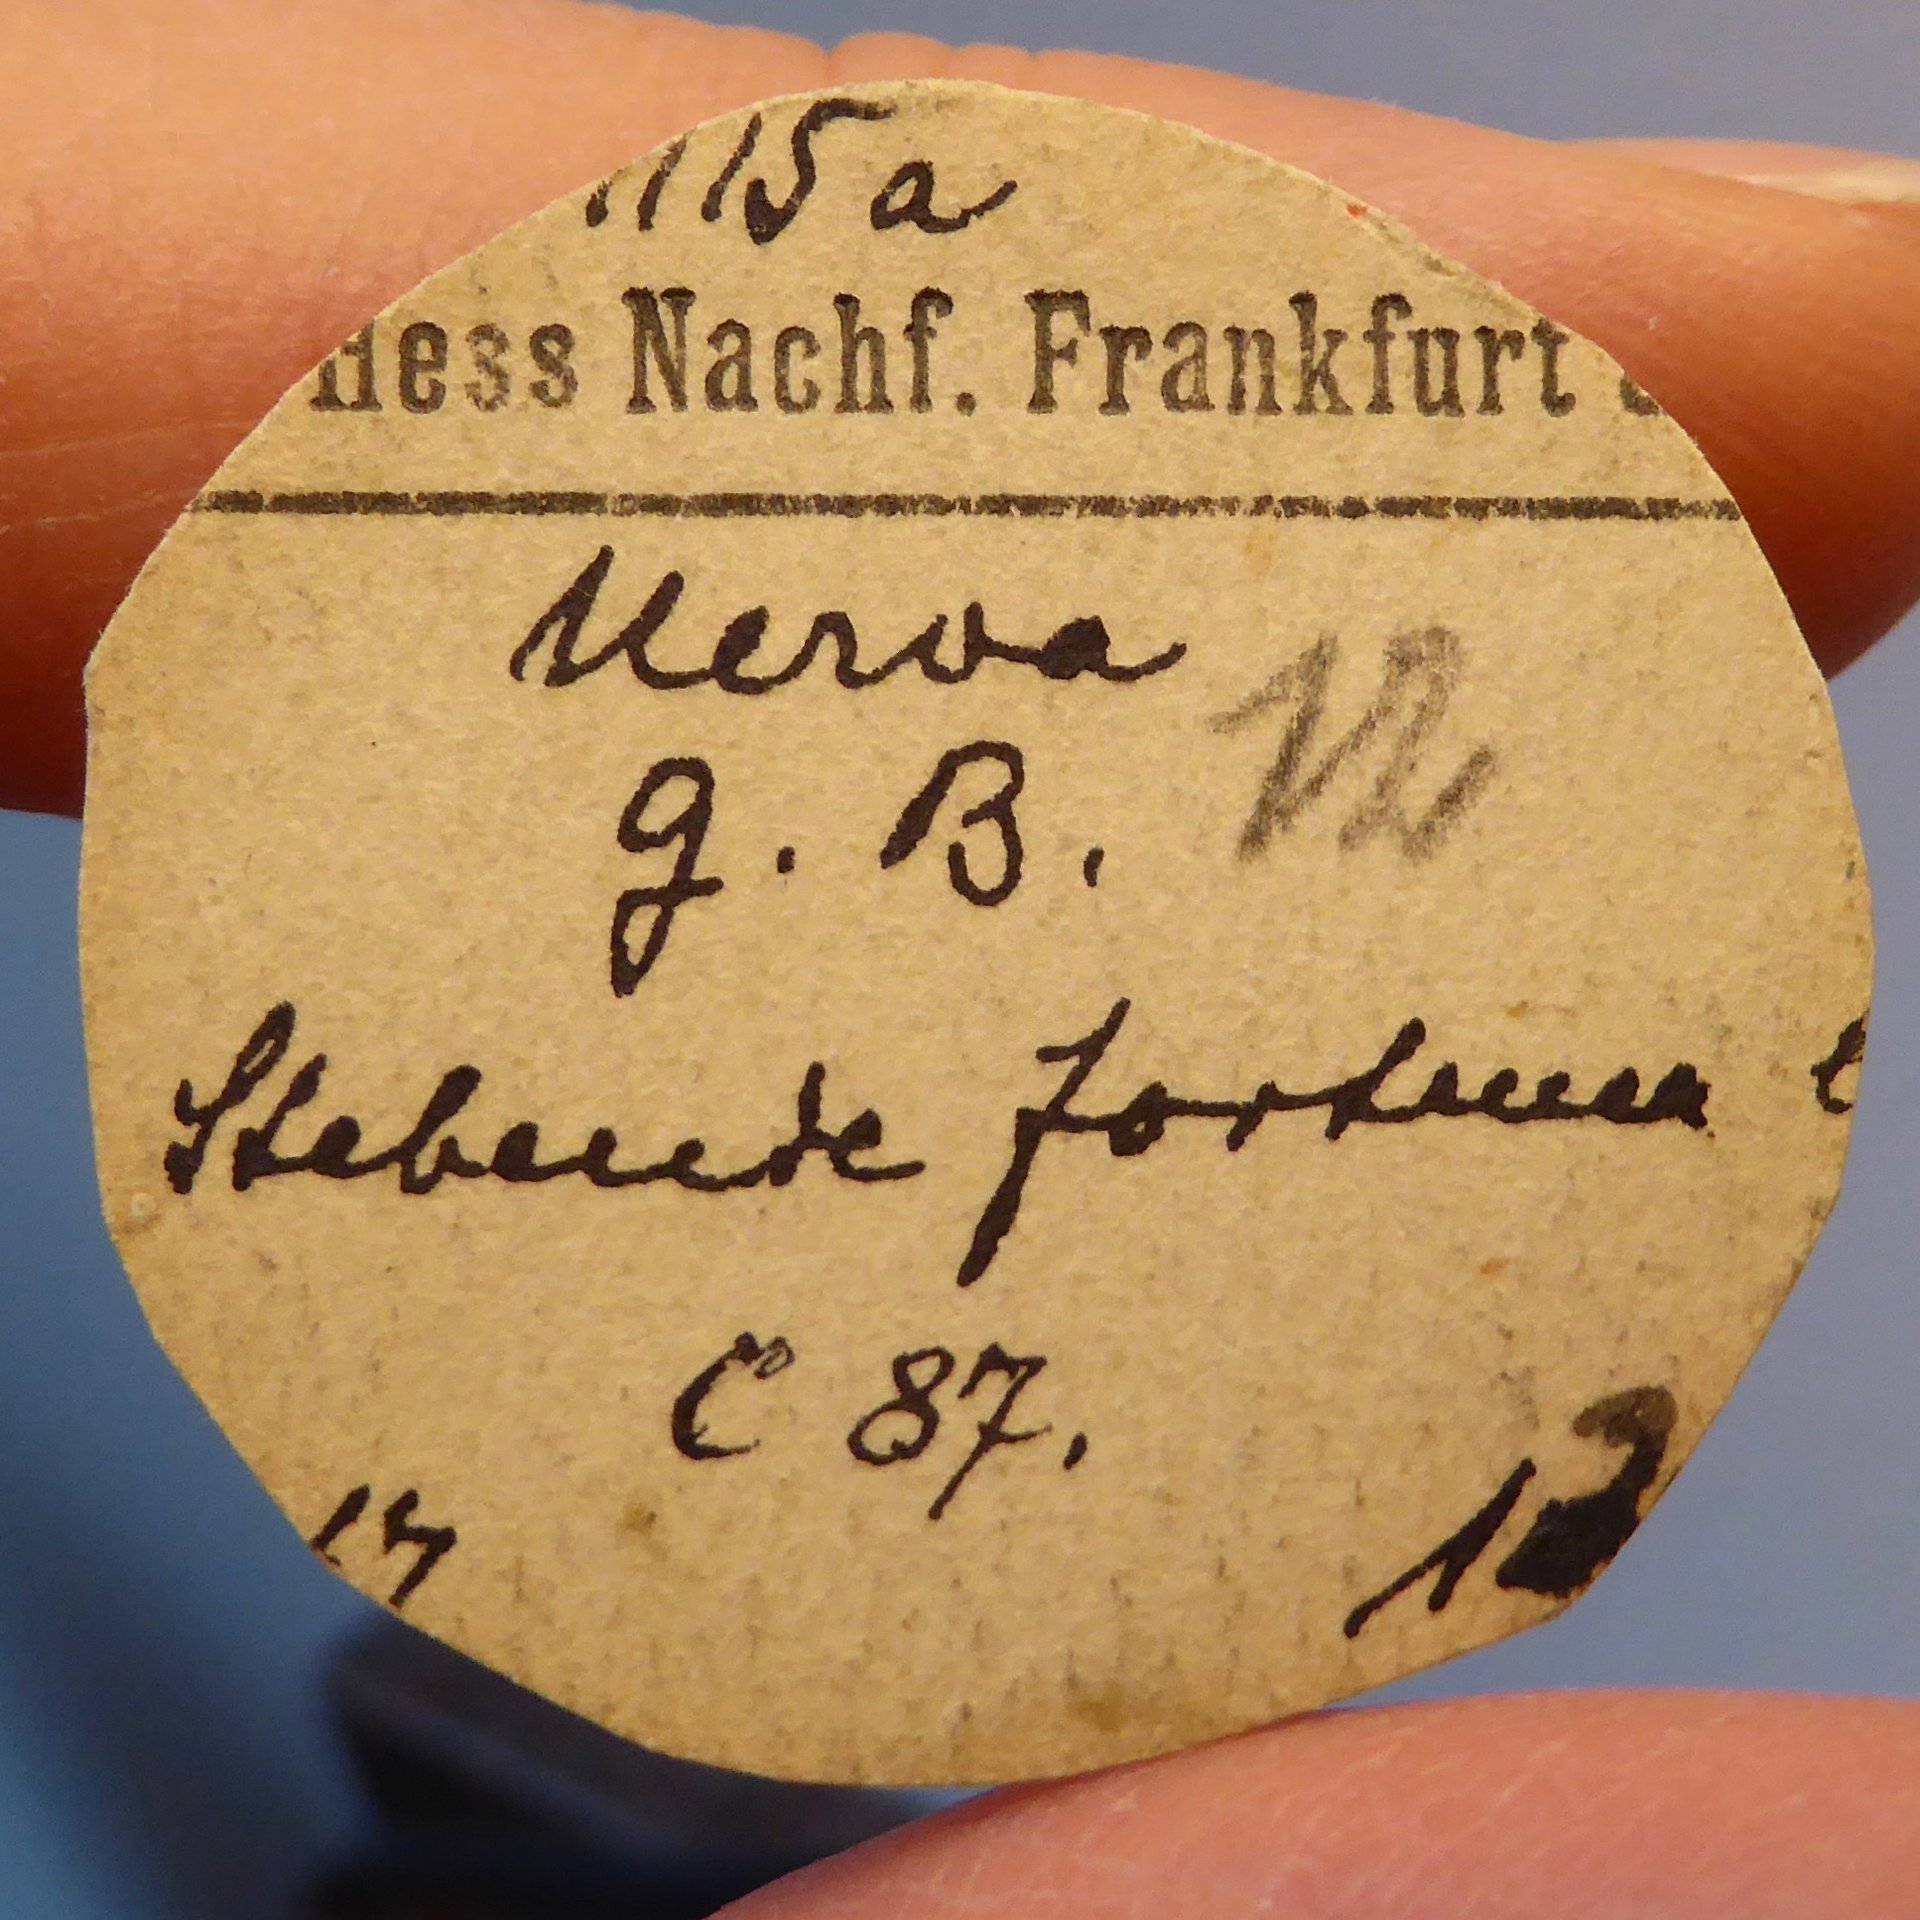 1115 a
Hess Nachf. Frankfurt a
Nerva
g. B.
Stehende Fortuna
C 87.
17